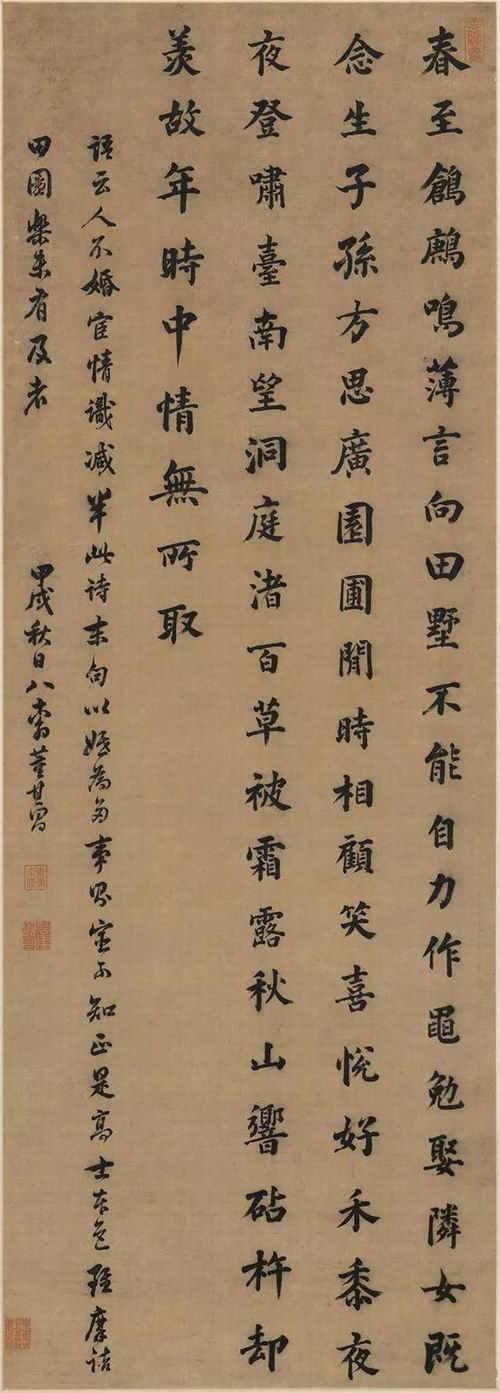 春至鶬鶊鳴薄言向田墅不能自力作黽勉娶隣女既
念生子孫方思廣園圃閒時相顧笑喜悅好禾黍夜
夜登嘯臺南望洞庭渚百草被霜露秋山響砧杵却
羨故年時中情無所取
語云人不婚宦情識減半此詩末句以婚為多事則宦可知正是高士本色雖摩詰
田園樂未有及者
甲戌秋日八董其昌